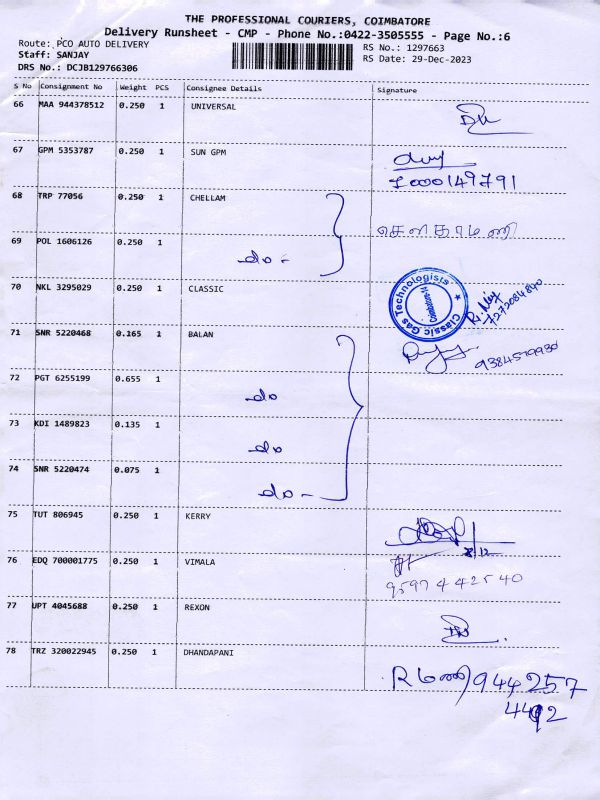 THE PROFESSIONAL COURIERS, COIMBATORE
Delivery Runsheet - CMP - Phone No.:0422-3505555 - Page No.:6
Route: PCO AUTO DELIVERY RS No.: 1297663
Staff: SANJAY RS Date: 29-Dec-2023
DRS No.: DCJB129766306
S No Consignment No Weight PCS Consignee Details Signature
66 MAA 944378512 0.250 1 UNIVERSAL
67 GPM 5353787 0.250 1 SUN GPM
68 TRP 77056 0.250 1 CHELLAM
69 POL 1606126 0.250 1 -do-
70 NKL 3295029 0.250 1 CLASSIC Classic Gas Technologists
71 SNR 5220468 0.165 1 BALAN
72 PGT 6255199 0.655 1 -do
73 KDI 1489823 0.135 1 -do
74 SNR 5220474 0.075 1 -do-
75 TUT 806945 0.250 1 KERRY
76 EDQ 700001775 0.250 1 VIMALA
9597442540
77 UPT 4045688 0.250 1 REXON
78 TRZ 320022945 0.250 1 DHANDAPANI
R மணி 944257
4492